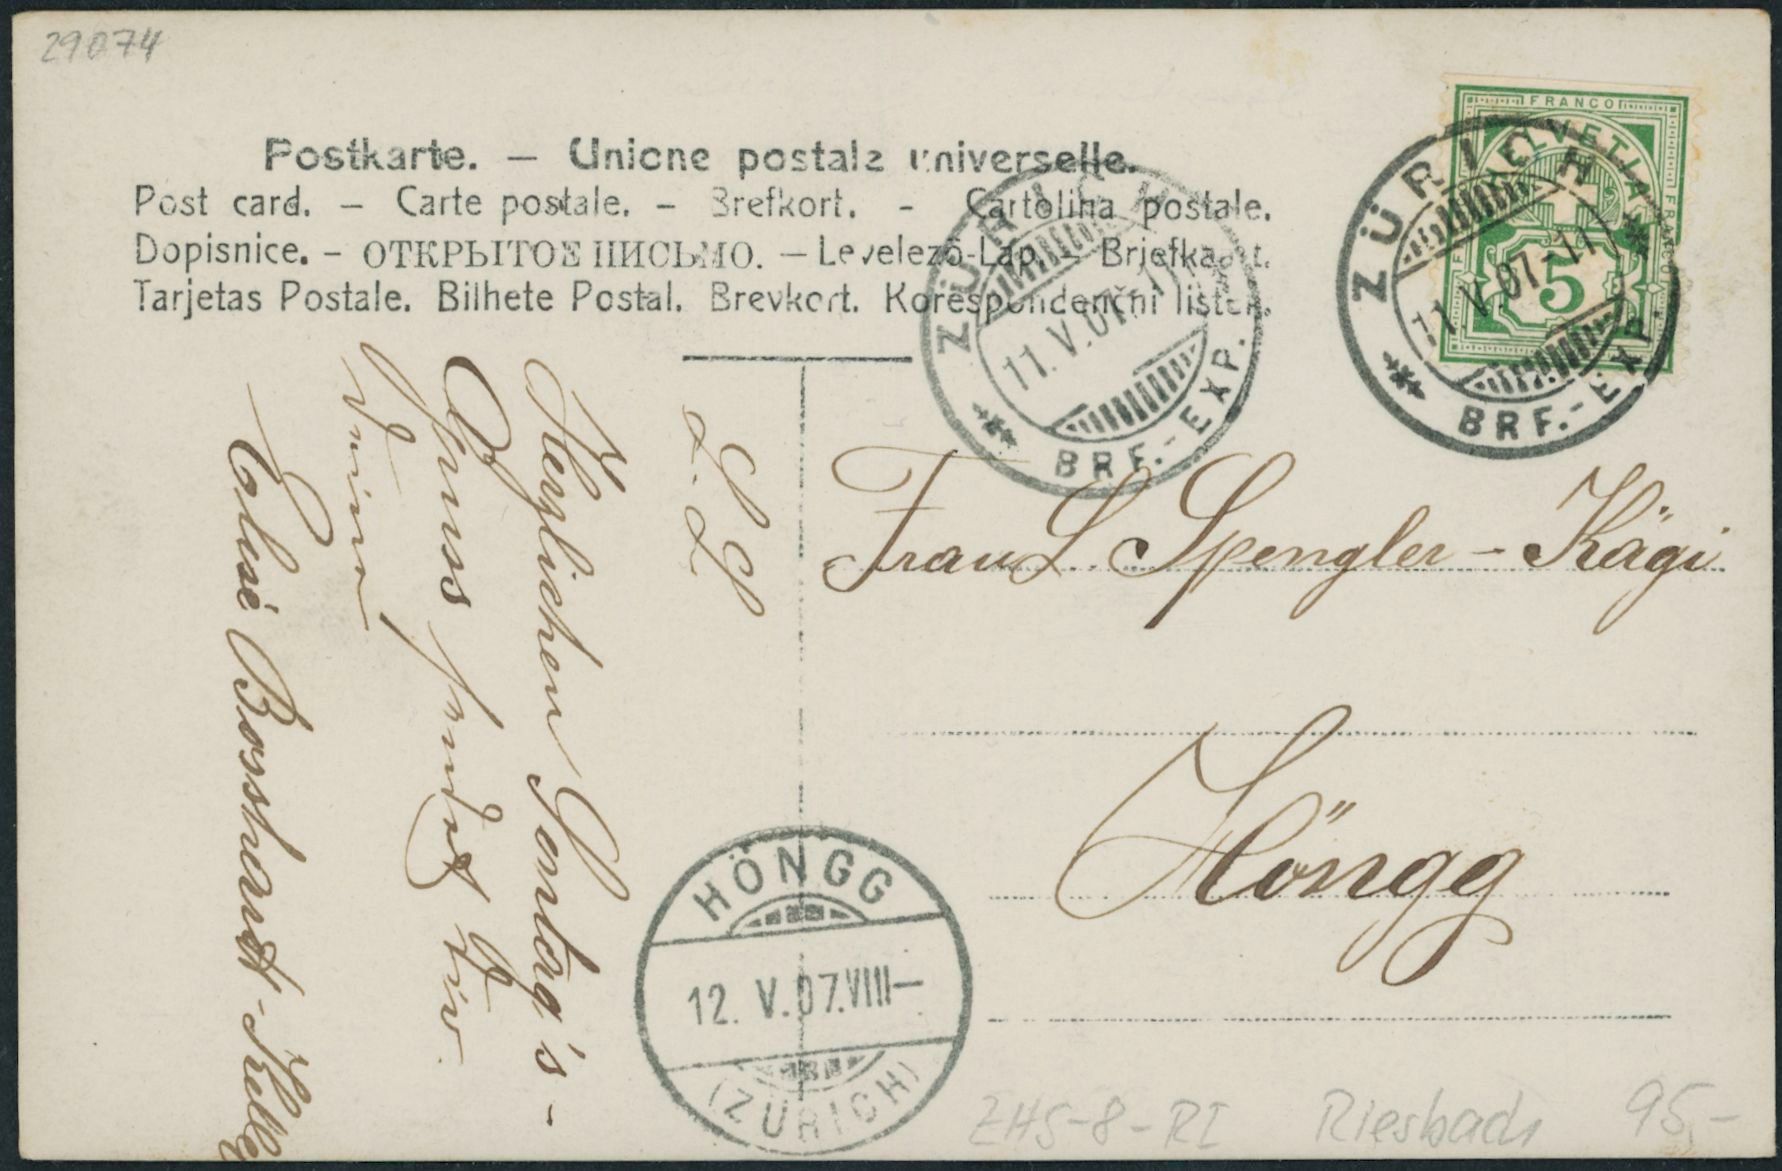 29074
Postkarte. — Unione postale universelle.
Post card. – Carte postale. – Brefkort. - Cartolina postale.
Dopisnice. – ОТКРЫТОЕ ПИСЬМО. – Levelező-Lap. – Briefkaart.
Tarjetas Postale. Bilhete Postal. Brevkort. Korespondenčni listek.
FRANCO
HELVETIA
FRANCO
FRANCO
5
ZÜRICH
11.V.07-11
BRF.-EXP.
ZÜRICH
11.V.07-11
BRF.-EXP.
Frau L. Spengler-Kägi
Höngg
L. L
Herzlichen Sontag's-
Gruss sendet dir
Deine
Elise Bosshardt-Keller
HÖNGG
12. V.07.VIII–
(ZÜRICH)
ZHS-8-RI Riesbach 95,-